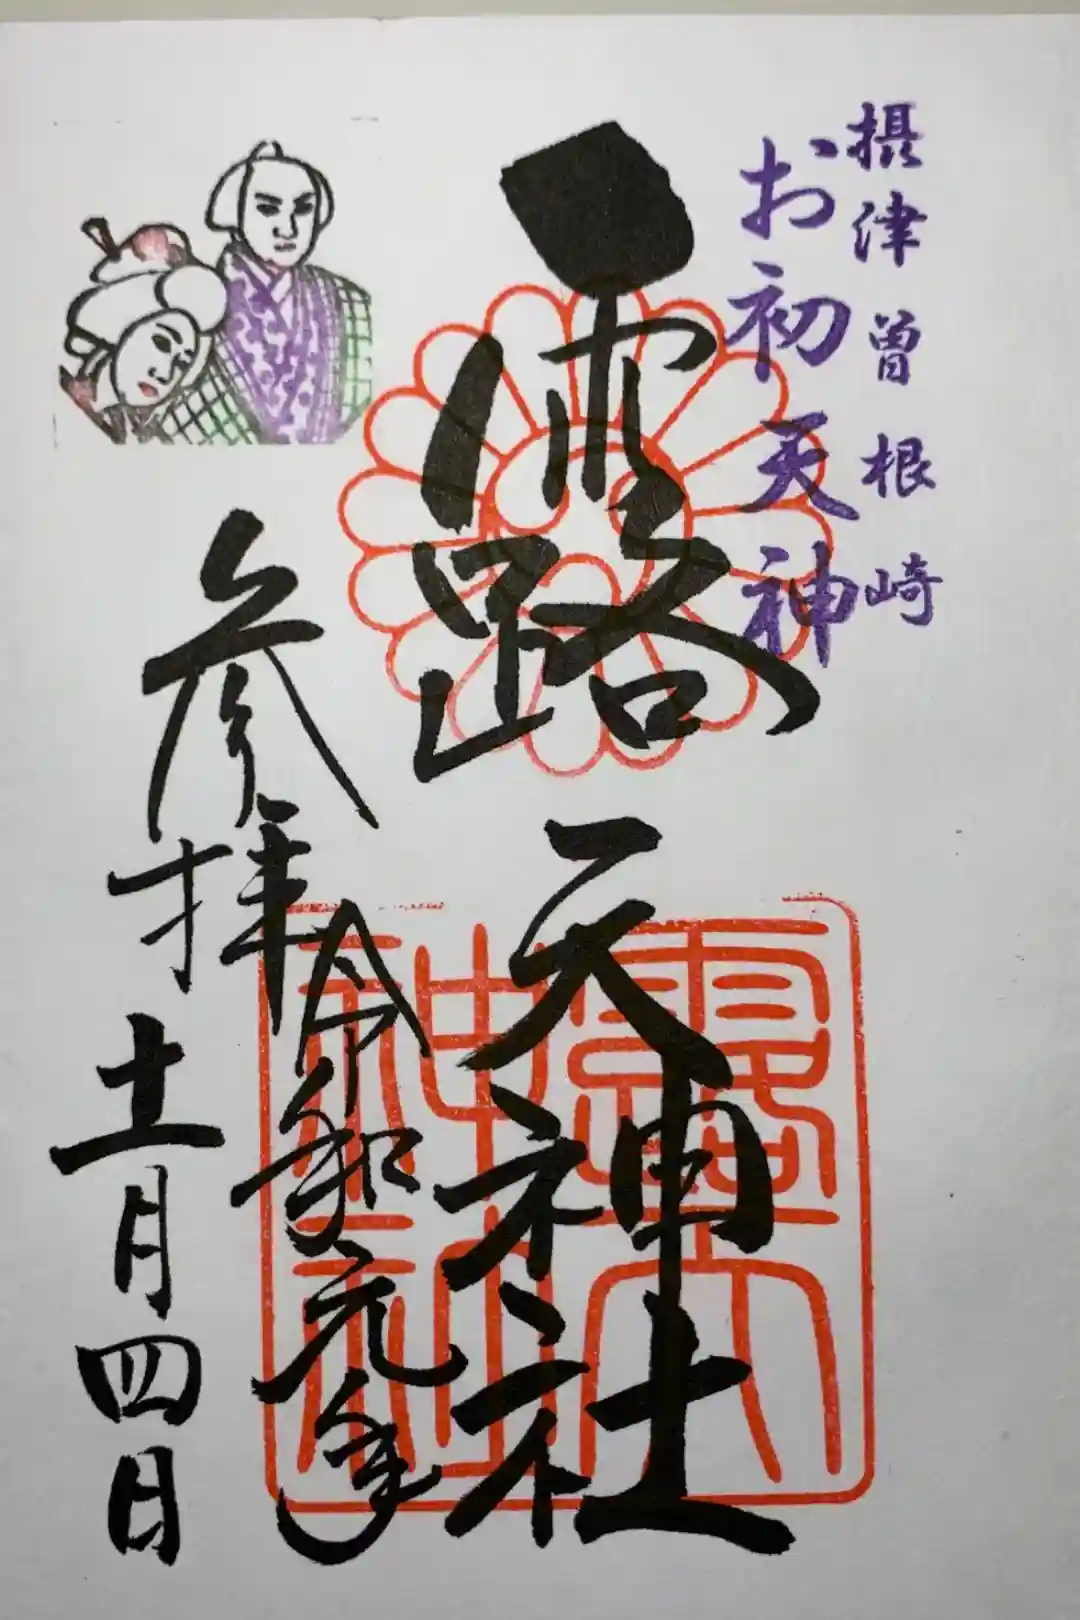 摂津曽根崎
お初天神
露天神社
令和元年
参拝十一月四日
露天
神社